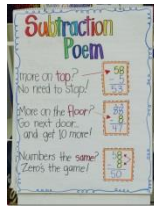 Subtraction
Poem
more on top?
No need to stop!
More on the floor?
Go next door...
and get 10 more!
Numbers the same?
Zero's the game!